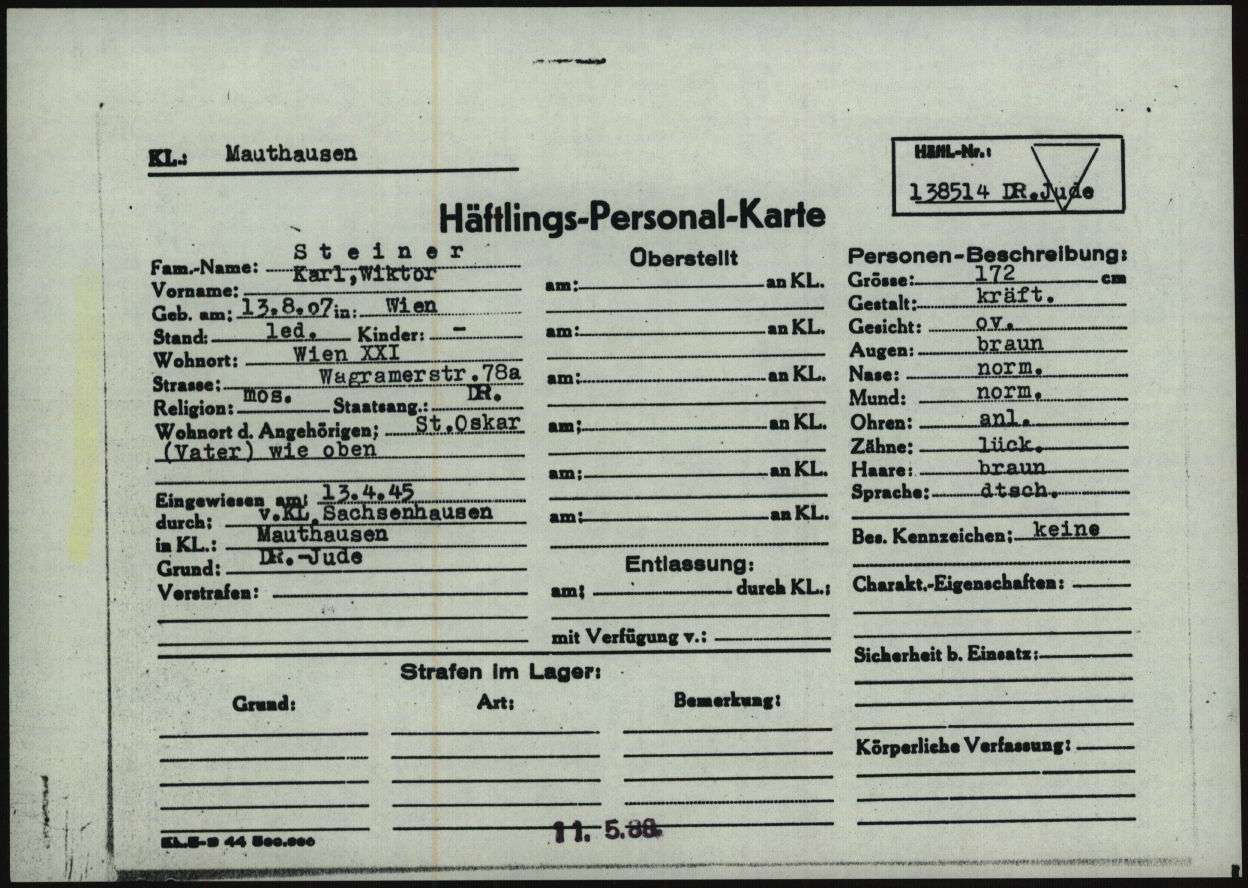 KL.: Mauthausen
Häftl.-Nr.:
138514 DR.Jude
Häftlings-Personal-Karte
Fam.-Name: Steiner
Vorname: Karl,Wiktor
Geb. am: 13.8.07 in: Wien
Stand: led. Kinder: -
Wohnort: Wien XXI
Strasse: Wagramerstr.78a
Religion: mos. Staatsang.: DR.
Wohnort d. Angehörigen: St.Oskar
(Vater) wie oben
Eingewiesen am: 13.4.45
durch: v.KL.Sachsenhausen
in KL.: Mauthausen
Grund: DR.-Jude
Vorstrafen:
Überstellt
am: an KL.
am: an KL.
am: an KL.
am: an KL.
am: an KL.
am: an KL.
Entlassung:
am: durch KL.:
mit Verfügung v.:
Personen-Beschreibung:
Grösse: 172 cm
Gestalt: kräft.
Gesicht: ov.
Augen: braun
Nase: norm.
Mund: norm.
Ohren: anl.
Zähne: lück.
Haare: braun
Sprache: dtsch.
Bes. Kennzeichen: keine
Charakt.-Eigenschaften:
Sicherheit b. Einsatz:
Körperliche Verfassung:
Strafen im Lager:
Grund: Art: Bemerkung:
11. 5.88.